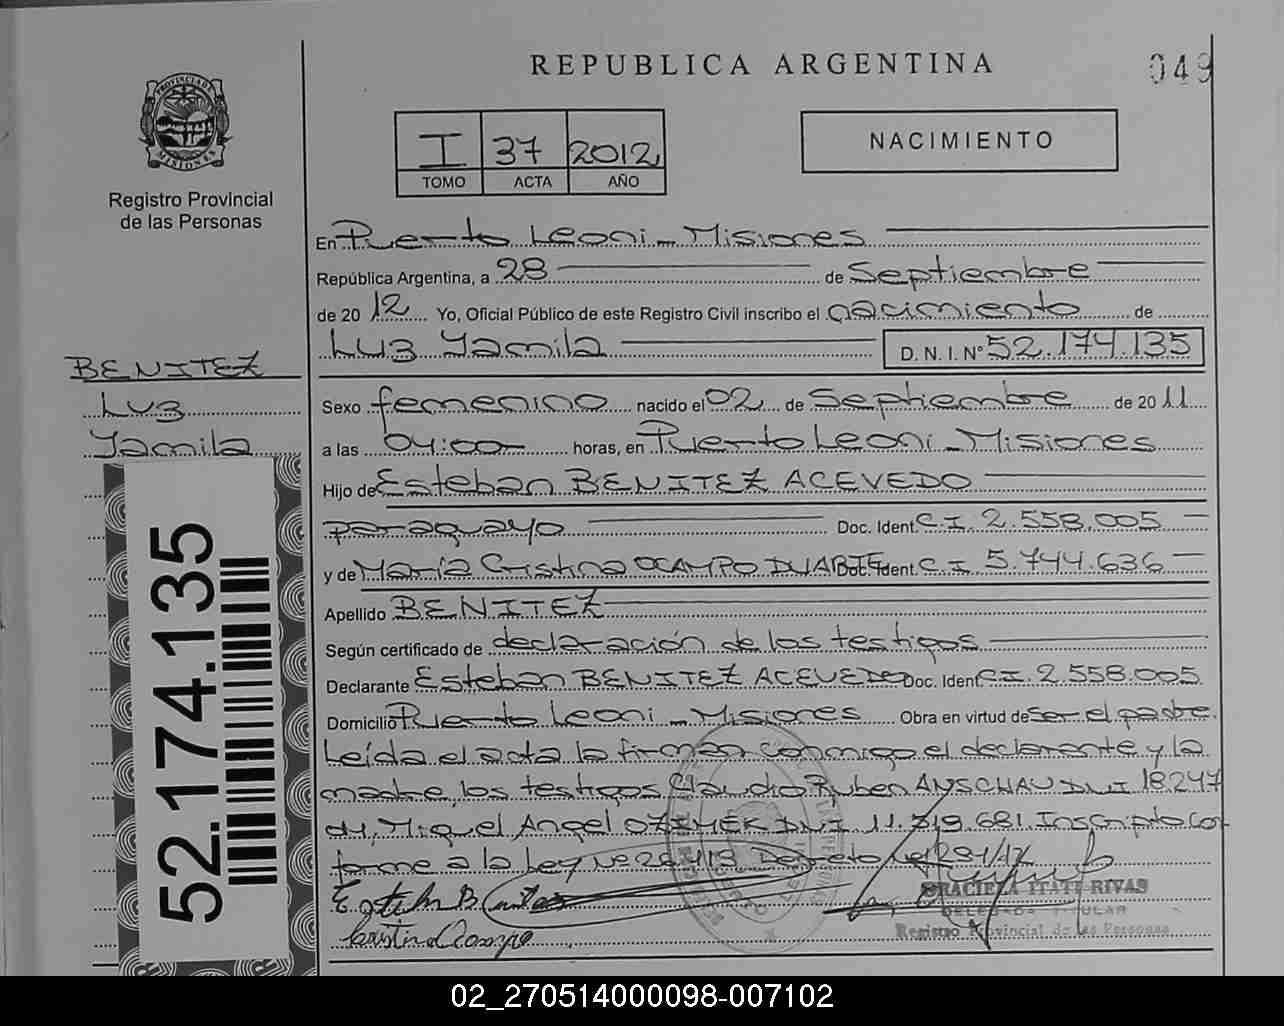 REPUBLICA ARGENTINA
049
PROVINCIA DE
MISIONES
Registro Provincial
de las Personas
I 37 2012
TOMO ACTA AÑO
NACIMIENTO
En Puerto Leoni - Misiones
República Argentina, a 28 de Septiembre
de 2012 Yo, Oficial Público de este Registro Civil inscribo el nacimiento de
Luz Yamila D. N. I. N° 52.174.135
BENITEZ
Luz
Yamila
52.174.135
Sexo femenino nacido el 02 de Septiembre de 2011
a las 04:00 horas, en Puerto Leoni - Misiones
Hijo de Esteban BENITEZ ACEVEDO
paraguayo Doc. Ident. C.I 2.558.005
y de María Cristina OCAMPO DUARTE Doc. Ident. C.I 5.744.636
Apellido BENITEZ
Según certificado de declaración de los testigos
Declarante Esteban BENITEZ ACEVEDO Doc. Ident. C.I. 2.558.005
Domicilio Puerto Leoni - Misiones Obra en virtud de ser el padre.
Leída el acta la firman conmigo el declarante y la
madre, los testigos Claudio Ruben ANSCHAU DNI 18.247
Miguel Angel OZIMEK DNI 11.719.681. Inscripto con
forme a la Ley Nº 26.413 Decreto Nº 1291/12
Cristina Ocampo
GRACIELA ITATI RIVAS
DELEGADA TITULAR
Registro Provincial de las Personas
02_270514000098-007102